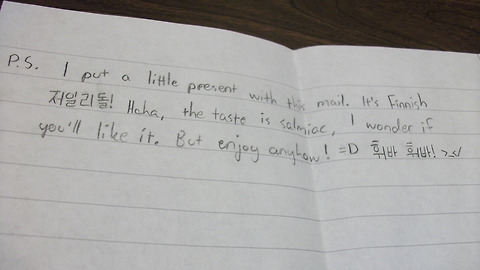 P.S. I put a little present with this mail. It's Finnish
저일리돌! Haha, the taste is salmiac, I wonder if
you'll like it. But enjoy anyhow! =D 훠바 훠바! >_</